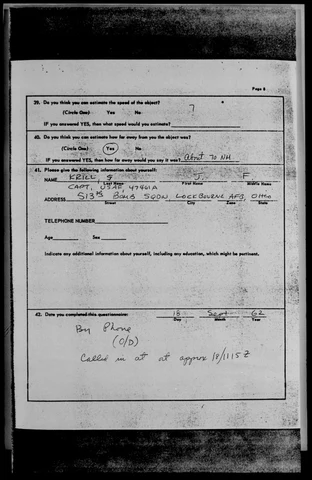 Page 8
39. Do you think you can estimate the speed of the object?
(Circle One) Yes No ?
IF you answered YES, then what speed would you estimate?
40. Do you think you can estimate how far away from you the object was?
(Circle One) Yes No
IF you answered YES, then how far away would you say it was? About 70 NM
41. Please give the following information about yourself:
NAME KRILL J. F
Last Name First Name Middle Name
CAPT, USAF, 47961A
ADDRESS 513th BOMB SQDN LOCKBOURNE AFB, OHIO
Street City Zone State
TELEPHONE NUMBER
Age Sex
Indicate any additional information about yourself, including any education, which might be pertinent.
42. Date you completed this questionnaire: 18 Sept 62
Day Month Year
By Phone
(C/D)
Called in at at approx 18/1115Z